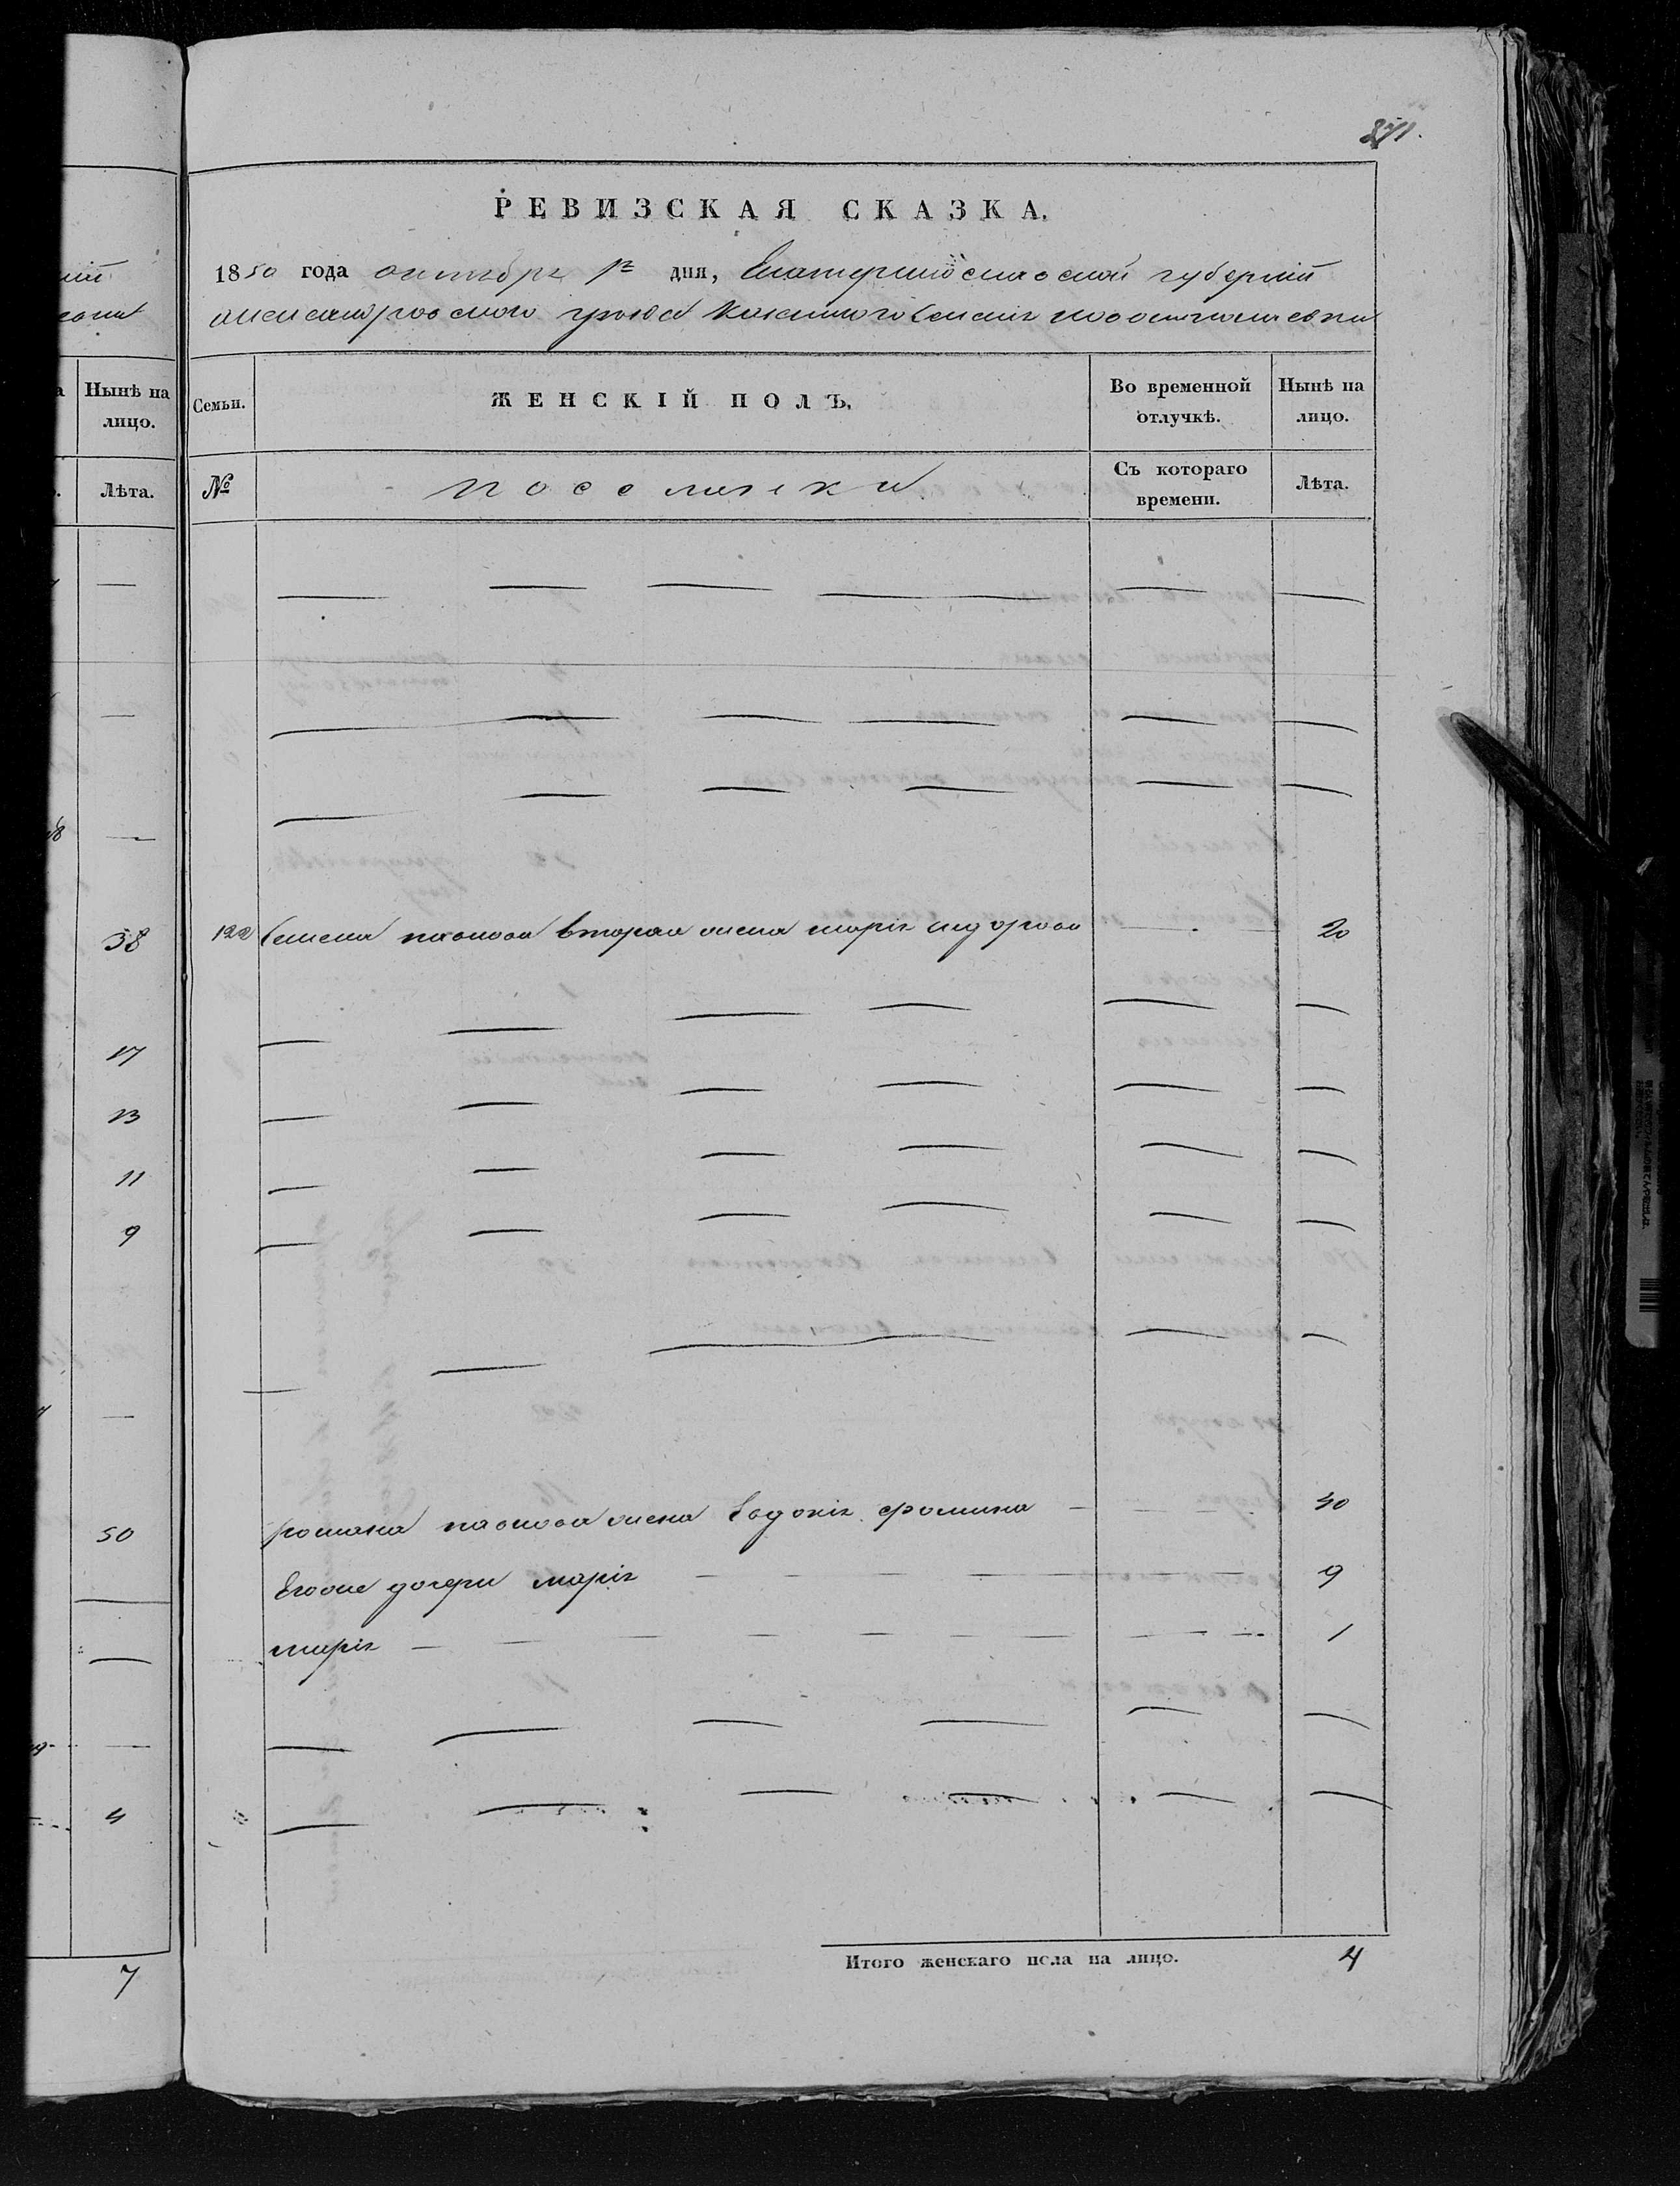 371.
РЕВИЗСКАЯ СКАЗКА.
1850 года октября 1го дня, Екатеринославской губерніи
александровского уезда казенного селенія
Нынѣ на лицо.
Лѣта.
Семьи.
ЖЕНСКІЙ ПОЛЪ.
Во временной отлучкѣ.
Нынѣ на лицо.
№
поселянки
Съ котораго времени.
Лѣта.
38
122 Семена павлова вторая жена марія сидорова 20
17
13
11
9
50
романа павлова жена Евдокія фомина 40
Егоже дочери марія 9
марія 1
4
Итого женскаго пола на лицо. 4
7